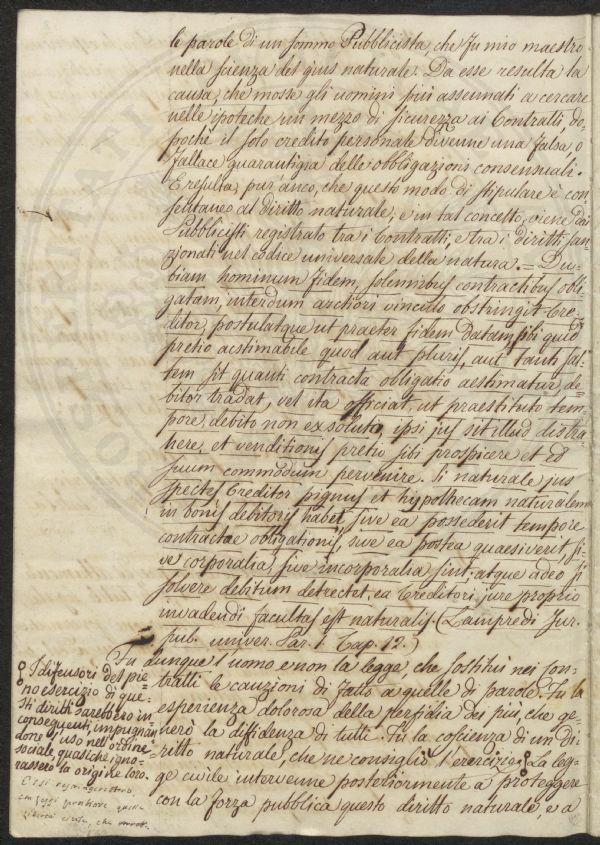 le parole di un sommo Pubblicista, che fu mio maestro
nella scienza del gius naturale. Da esse resulta la
causa, che mosse gli uomini più assennati a cercare
nelle ipoteche un mezzo di sicurezza ai Contratti, do-
pochè il solo credito personale divenne una falsa, o
fallace guarantigia delle obbligazioni consensuali.
E resulta, pur anco, che questo modo di stipulare è con-
sentaneo al diritto naturale; e in tal concetto, viene dai
Pubblicisti registrato tra i Contratti, e tra i diritti san-
zionati nel codice universale della natura. = Du-
biam hominum fidem, solemnibus contractibus obli-
gatam, interdum arctiori vinculo obstringit Cre-
ditor, postulatque ut praeter fidem datam sibi quid
pretio aestimabile quod aut pluris, aut tanti sal-
tem sit quanti contracta obligatio aestimatur, de-
bitor tradat, vel ita officiat, ut praestituto tem-
pore, debito non exsoluto, ipsi jus sit illud distra-
here, et venditionis pretio sibi prospicere et ad
suum commodum pervenire. Si naturale jus
spectes Creditor pignus et hypothecam naturalem
in bonis debitoris habet, sive ea possederit tempore
contractae obligationis, sive ea postea quaesiverit, si-
ve corporalia, sive incorporalia sint: atque adeo si
solvere debitum detrectet, ea Creditori jure proprio
invadendi facultas est naturalis. (Lampredi Jur.
pub. univer. Par. 1. Cap. 12.)
Fu dunque l'uomo e non la legge che sostituì nei Con-
tratti le cauzioni di fatto a quelle di parole. Fu la
esperienza dolorosa della perfidia dei più, che ge-
nerò la diffidenza di tutti. Fu la coscienza di un di-
ritto naturale, che ne consigliò l'esercizio. La leg-
ge civile intervenne posteriormente a proteggere
con la forza pubblica questo diritto naturale, e a
I difensori del pie-
no esercizio di que-
sti diritti sarebbero in
conseguenti, impugnan-
done l'uso nell'ordine
sociale, qualiche igno-
rassero la origine loro.
che